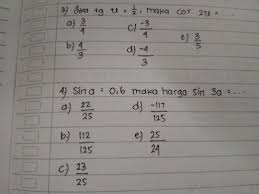 3) Jika tg u = 1/2, maka cos 2u =
a) 3/4 c) -3/4 e) 3/5
b) 4/3 d) -4/3
4) Sin a = 0,6 maka harga sin 3a = ...
a) 22/25 d) -117/125
b) 112/125 e) 25/24
c) 23/25